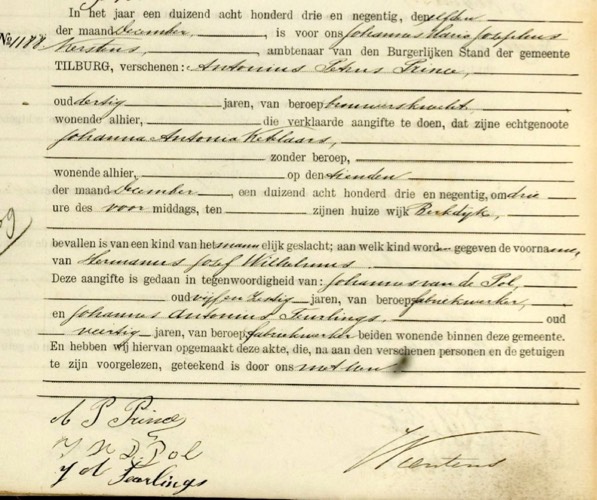 In het jaar een duizend acht honderd drie en negentig, den elfden
der maand December, is voor ons Johannes Maria Josephus
No. 1188 Kerstens, ambtenaar van den Burgerlijken Stand der gemeente
TILBURG, verschenen: Antonius Petrus Prince,
oud dertig jaren, van beroep brouwersknecht,
wonende alhier, die verklaarde aangifte te doen, dat zijne echtgenoote
Johanna Antonia Ketelaars,
zonder beroep,
wonende alhier, op den tienden
der maand December, een duizend acht honderd drie en negentig, om drie
ure des voor middags, ten zijnen huize wijk Berkdijk,
bevallen is van een kind van het mannelijk geslacht; aan welk kind word gegeven de voorname,
van Hermanus Jozef Wilhelmus.
Deze aangifte is gedaan in tegenwoordigheid van: Johannes van de Pol,
oud vijf en zestig jaren, van beroep fabriekwerker,
en Johannes Antonius Teurlings, oud
veertig jaren, van beroep fabriekwerker beiden wonende binnen deze gemeente.
En hebben wij hiervan opgemaakt deze akte, die, na aan den verschenen personen en de getuigen
te zijn voorgelezen, geteekend is door ons met hen
A P Prince
Pol
Teurlings
Kerstens